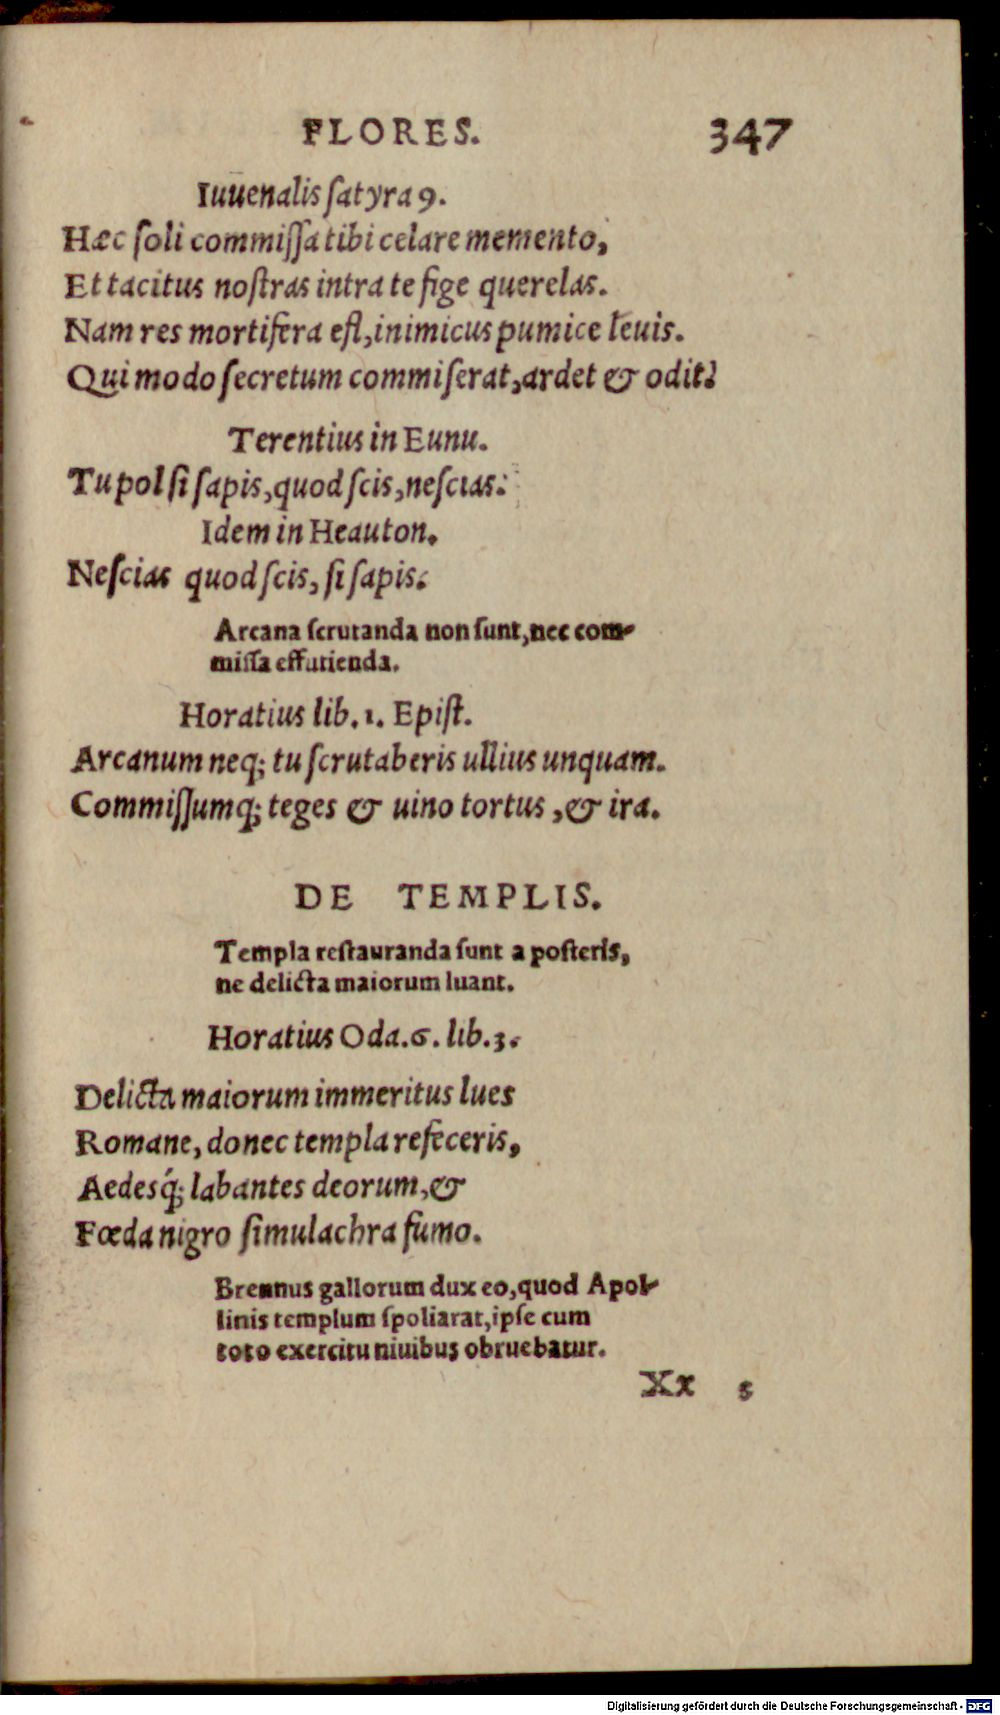 FLORES. 347
Iuuenalis ſatyra 9.
Hæc ſoli commiſſa tibi celare memento,
Et tacitus noſtras intra te fige querelas.
Nam res mortifera eſt, inimicus pumice leuis.
Qui modo ſecretum commiſerat, ardet & odit.
Terentius in Eunu.
Tu pol ſi ſapis, quod ſcis, neſcias.
Idem in Heauton.
Neſcias quod ſcis, ſi ſapis.
Arcana ſcrutanda non ſunt, nec com-
miſſa effutienda.
Horatius lib. 1. Epiſt.
Arcanum neq; tu ſcrutaberis ullius unquam.
Commiſſumq; teges & uino tortus, & ira.
DE TEMPLIS.
Templa reſtauranda ſunt a poſteris,
ne delicta maiorum luant.
Horatius Oda. 6. lib. 3.
Delicta maiorum immeritus lues
Romane, donec templa refeceris,
Aedesq́; labantes deorum, &
Fœda nigro ſimulachra fumo.
Brennus gallorum dux eo, quod Apol-
linis templum ſpoliarat, ipſe cum
toto exercitu niuibus obruebatur.
Xx 5
Digitalisierung gefördert durch die Deutsche Forschungsgemeinschaft - DFG